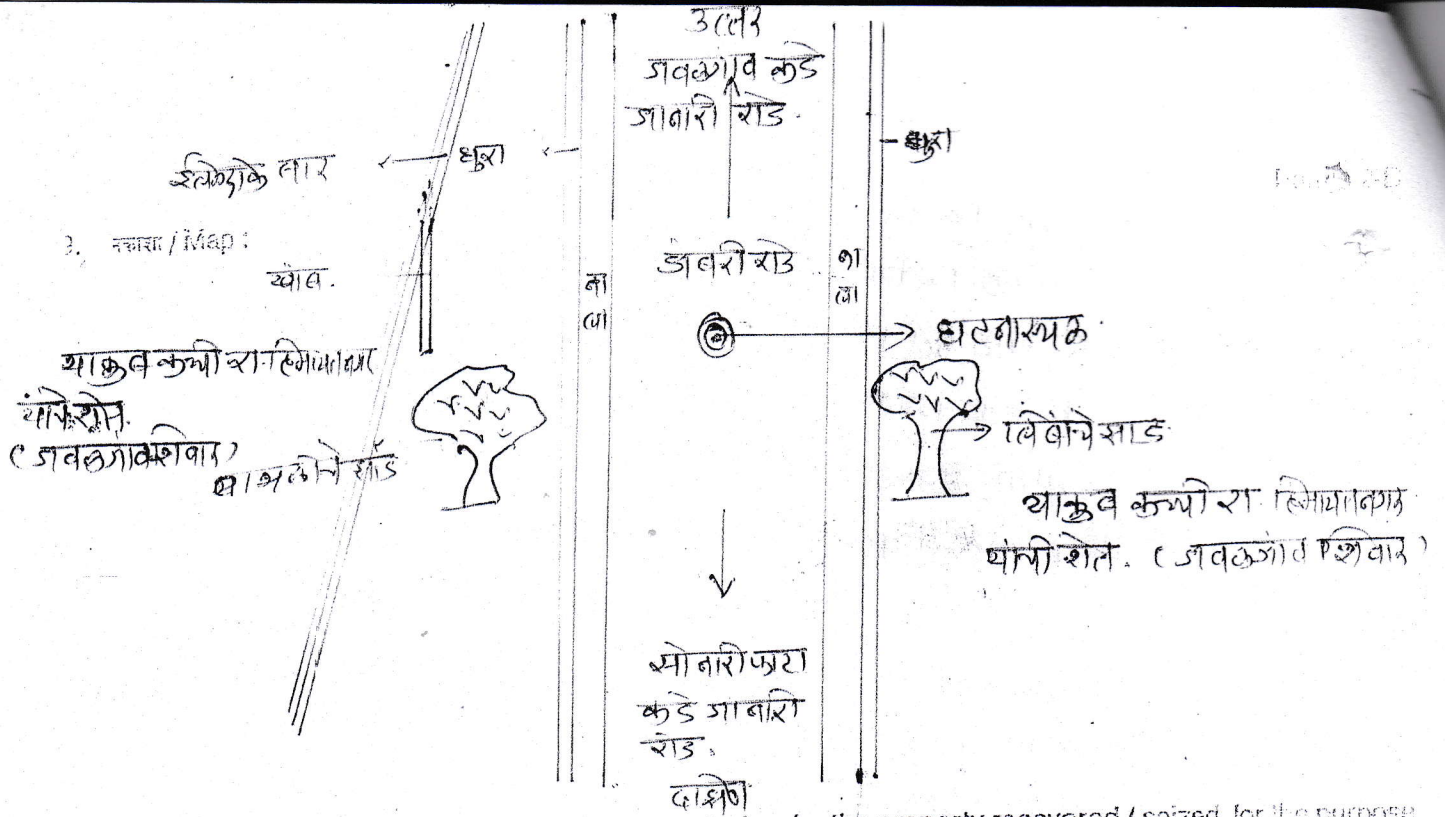 उत्तर
जवळगांव कडे
जानारी रोड.
धुरा
धुरा
ईलेक्ट्रीक तार
3. नकाशा / Map :
खांब.
डांबरी रोड
ना
ला
ना
ला
घटनास्थळ.
याकुब कच्ची रा. हिमायतनगर
यांचे शेत.
(जवळगांव शिवार)
बाभळीचे झाड
लिंबाचे झाड
याकुब कच्ची रा. हिमायतनगर
यांची शेत. (जवळगांव शिवार)
सोनारी फाटा
कडे जानारी
रोड.
दक्षिण
property recovered / seized, for the purpose